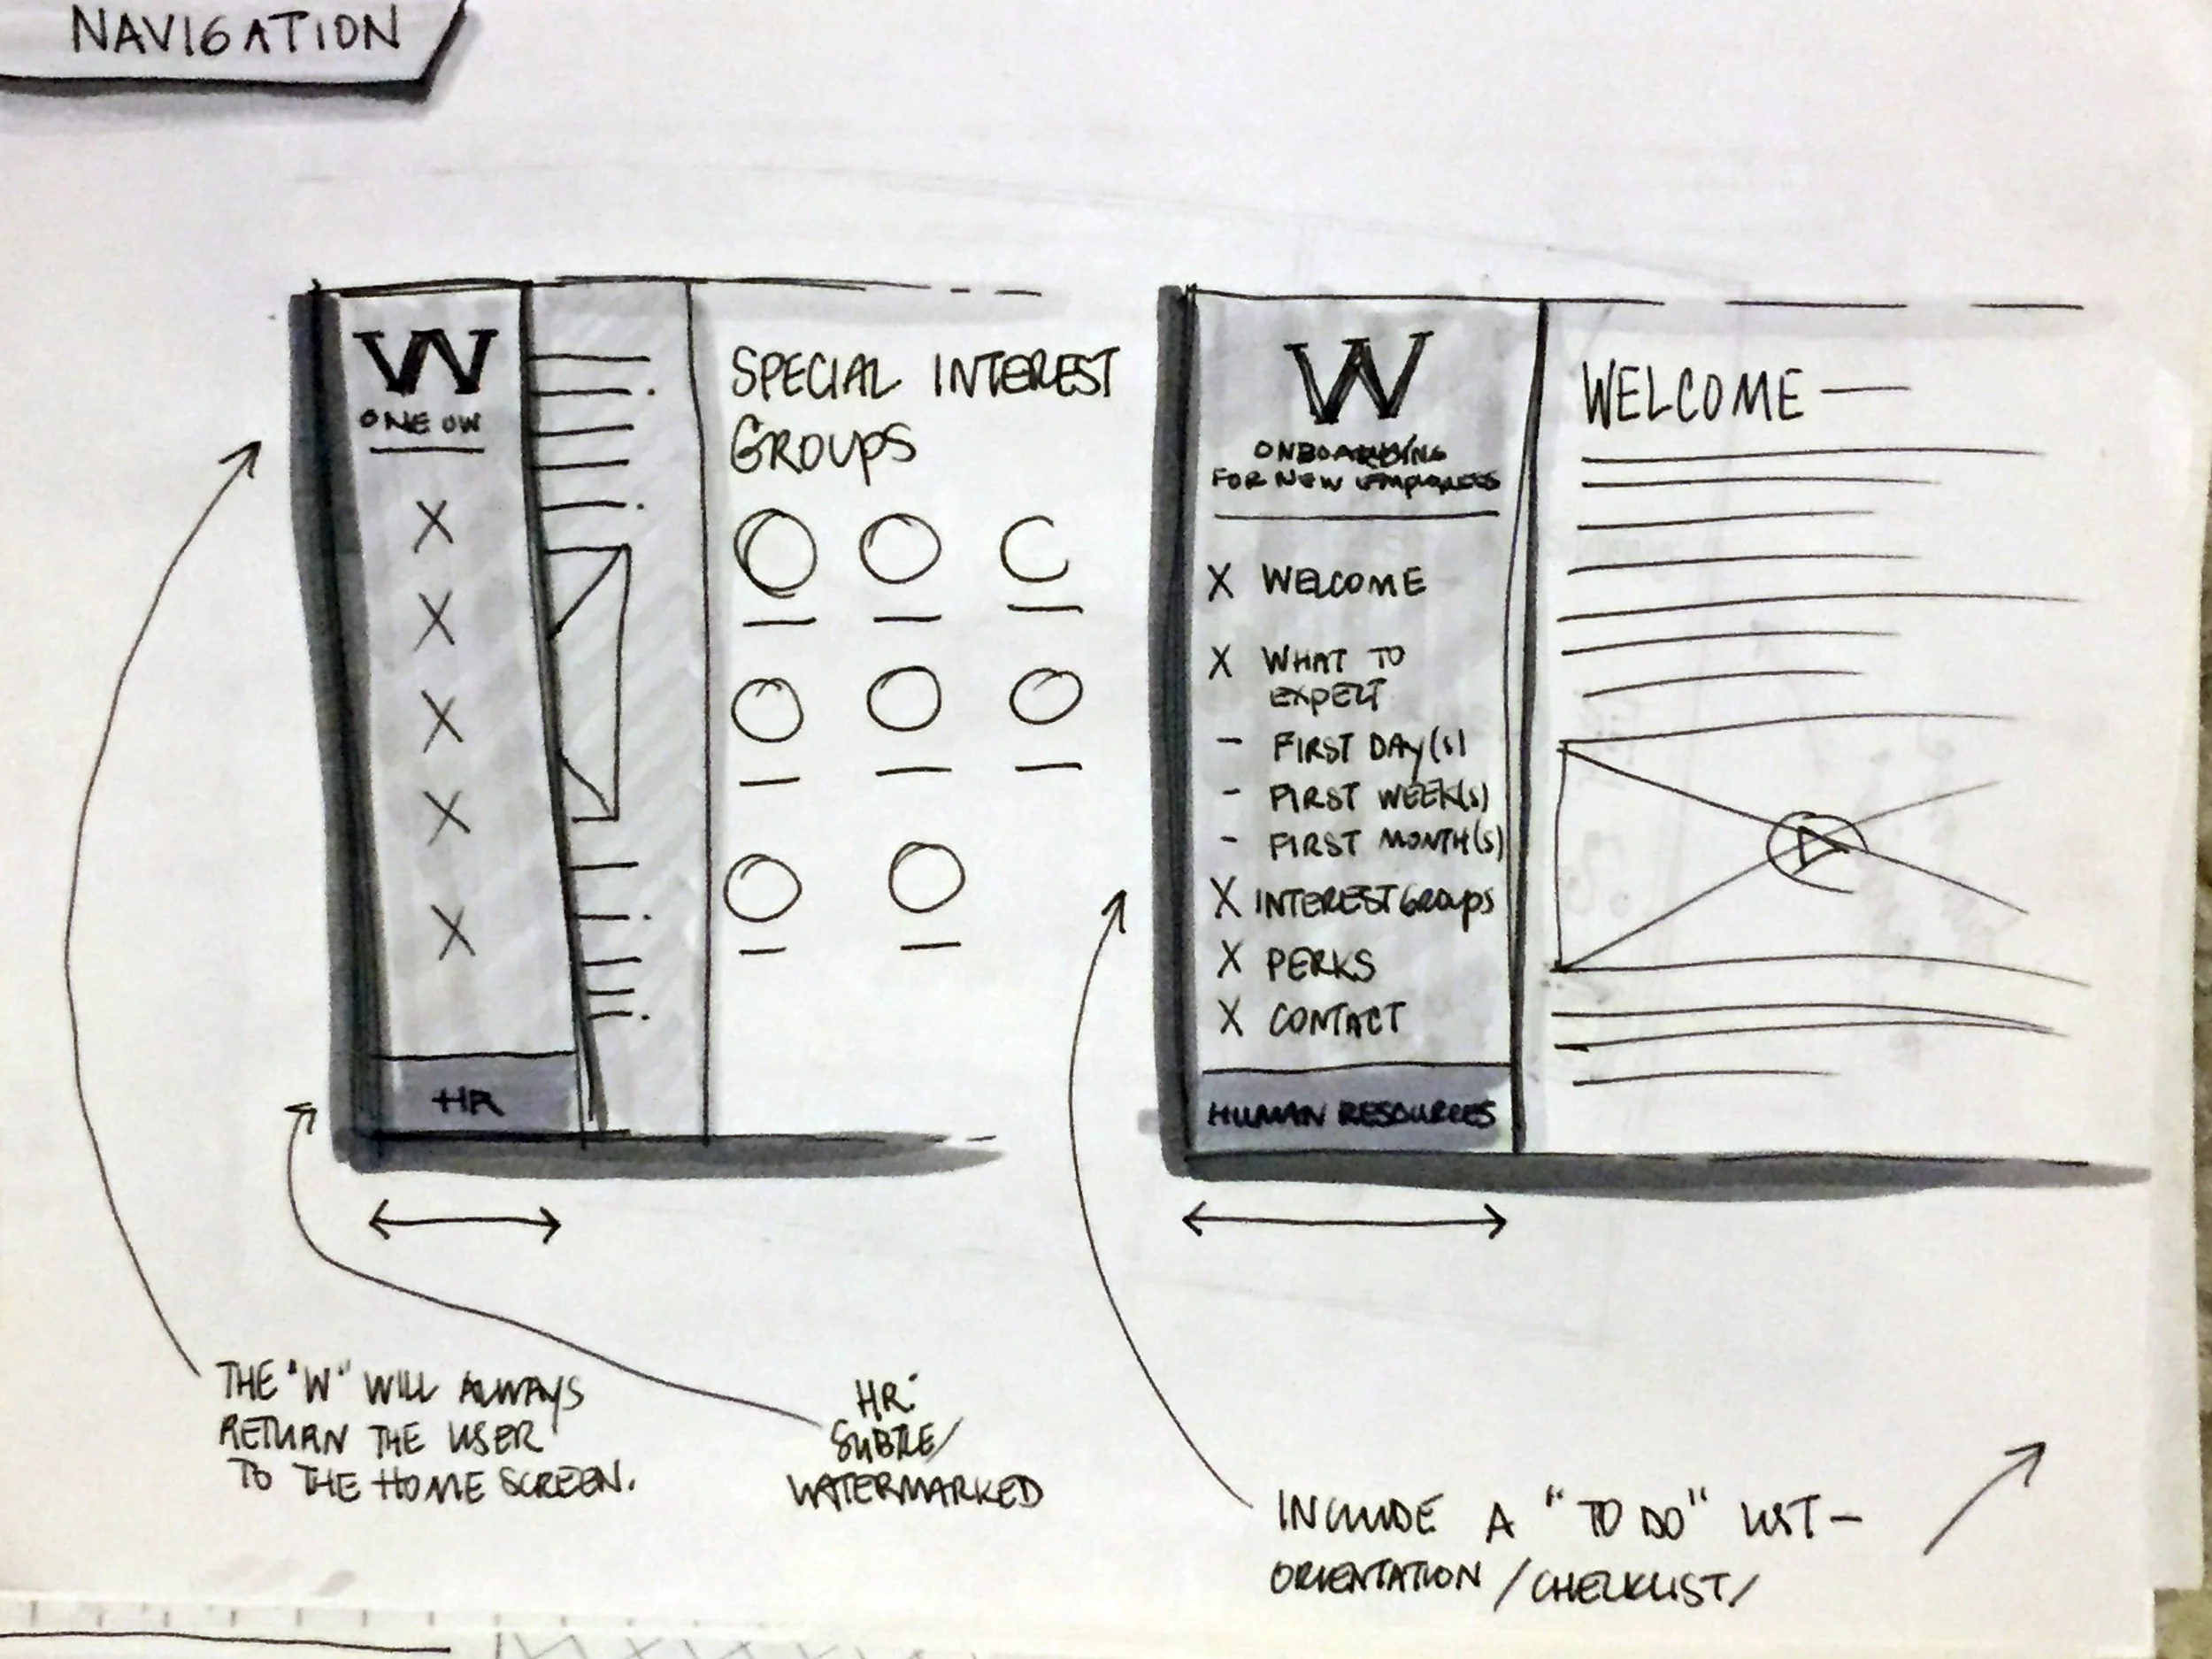 NAVIGATION
W
ONE UW
X
X
X
X
X
HR
SPECIAL INTEREST
GROUPS
W
ONBOARDING
FOR NEW EMPLOYEES
X WELCOME
X WHAT TO
EXPECT
- FIRST DAY(S)
- FIRST WEEK(S)
- FIRST MONTH(S)
X INTEREST GROUPS
X PERKS
X CONTACT
HUMAN RESOURCES
WELCOME —
THE "W" WILL ALWAYS
RETURN THE USER
TO THE HOME SCREEN.
HR:
SUBTLE/
WATERMARKED
INCLUDE A "TO DO" LIST –
ORIENTATION / CHECKLIST/